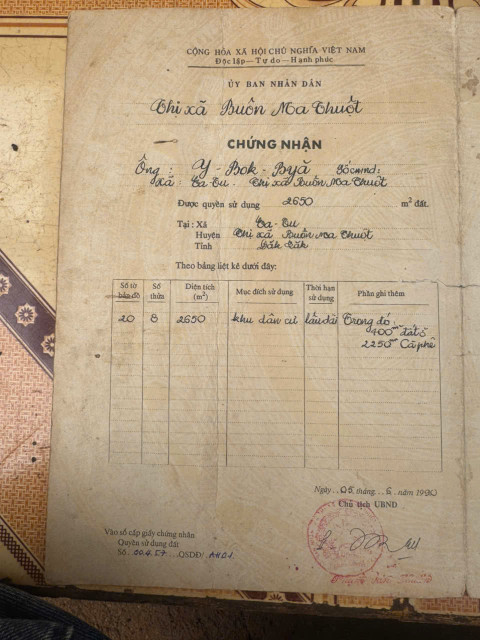 CỘNG HÒA XÃ HỘI CHỦ NGHĨA VIỆT NAM
Độc lập — Tự do — Hạnh phúc
ỦY BAN NHÂN DÂN
Thị xã Buôn Ma Thuột
CHỨNG NHẬN
Ông : Y - Bok - Byă Số cmnd:
Xã : Ea - Tu . Thị xã Buôn Ma Thuột
Được quyền sử dụng 2650 m² đất.
Tại : Xã Ea - Tu
Huyện Thị xã Buôn Ma Thuột
Tỉnh Đăk Lăk
Theo bảng liệt kê dưới đây:
Số tờ bản đồ Số thửa Diện tích (m²) Mục đích sử dụng Thời hạn sử dụng Phần ghi thêm
20 8 2650 khu dân cư lâu dài Trong đó :
400m² đất ở
2250m² Cà phê
Ngày .. 05 tháng .. 6 . năm 1990
Chủ tịch UBND
Vào sổ cấp giấy chứng nhận
Quyền sử dụng đất
Số QSDĐ/